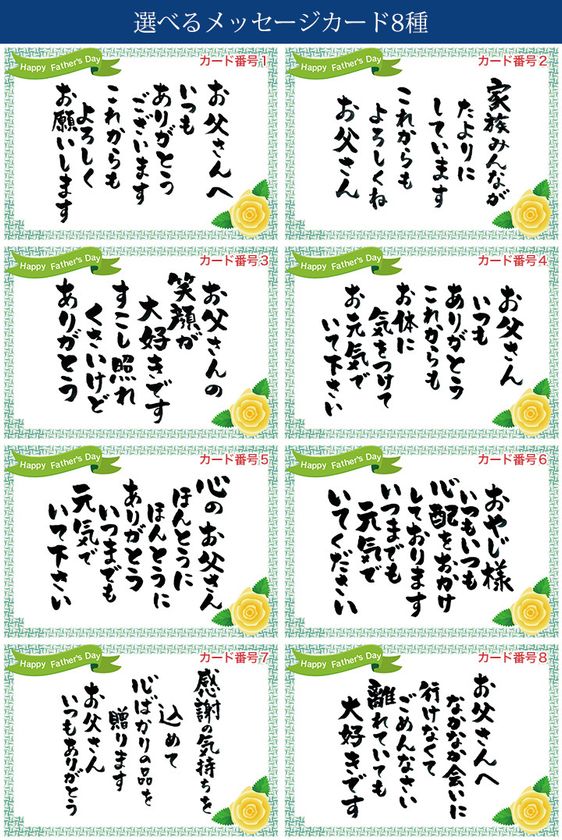 選べるメッセージカード8種
Happy Father's Day
カード番号1
お父さんへ
いつも
ありがとう
ございます
これからも
よろしく
お願いします
Happy Father's Day
カード番号2
家族みんなが
たよりに
しています
これからも
よろしくね
お父さん
Happy Father's Day
カード番号3
お父さんの
笑顔が
大好きです
すこし照れ
くさいけど
ありがとう
Happy Father's Day
カード番号4
お父さん
いつも
ありがとう
これからも
お体に
気をつけて
お元気で
いて下さい
Happy Father's Day
カード番号5
心のお父さん
ほんとうに
ほんとうに
ありがとう
いつまでも
元気で
いて下さい
Happy Father's Day
カード番号6
おやじ様
いつもいつも
心配をおかけ
しております
いつまでも
元気で
いてください
Happy Father's Day
カード番号7
感謝の気持ちを
込めて
心ばかりの品を
贈ります
お父さん
いつもありがとう
Happy Father's Day
カード番号8
お父さんへ
なかなか会いに
行けなくて
ごめんなさい
離れていても
大好きです